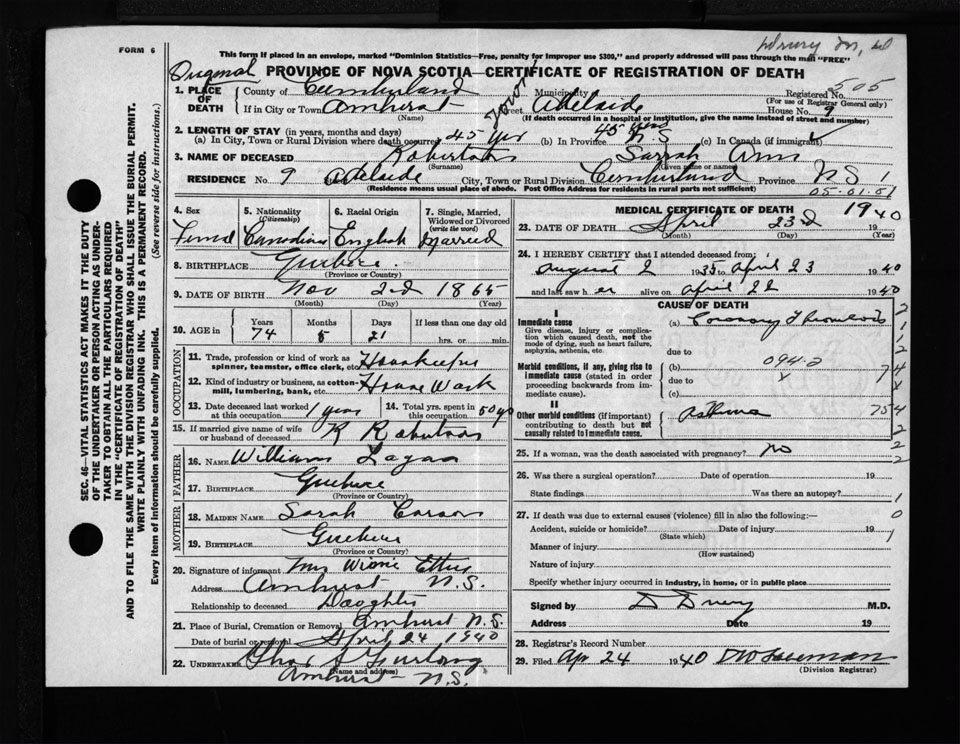 FORM 6
Drury M.D.
This form if placed in an envelope, marked "Dominion Statistics—Free, penalty for improper use $300," and properly addressed will pass through the mail "FREE"
Original PROVINCE OF NOVA SCOTIA—CERTIFICATE OF REGISTRATION OF DEATH
505
1. PLACE OF DEATH County of Cumberland Municipality Registered No.
(For use of Registrar General only)
If in City or Town Amherst Town Street Adelaide House No. 9
(Name) (If death occurred in a hospital or institution, give the name instead of street and number)
2. LENGTH OF STAY (in years, months and days)
(a) In City, Town or Rural Division where death occurred 45 yrs (b) In Province 45 yrs N S (c) In Canada (if immigrant)
3. NAME OF DECEASED Robertson Sarrah Ann
(Surname) (Given name or names)
RESIDENCE No. 9 Adelaide City, Town or Rural Division Cumberland Province N S 1
(Residence means usual place of abode. Post Office Address for residents in rural parts not sufficient) 05.01.01
4. Sex Femal
5. Nationality (Citizenship) Canadian
6. Racial Origin English
7. Single, Married, Widowed or Divorced (write the word) Married
8. BIRTHPLACE Quebec
(Province or Country)
9. DATE OF BIRTH Nov 2nd 1865
(Month) (Day) (Year)
10. AGE in Years 74 Months 5 Days 21 If less than one day old hrs. or min.
OCCUPATION
11. Trade, profession or kind of work as spinner, teamster, office clerk, etc. Housekeeper
12. Kind of industry or business, as cotton-mill, lumbering, bank, etc. House Work
13. Date deceased last worked at this occupation 1 year
14. Total yrs. spent in this occupation 50 yrs
15. If married give name of wife or husband of deceased R Robertson
FATHER
16. NAME William Logan
17. BIRTHPLACE Quebec
(Province or Country)
MOTHER
18. MAIDEN NAME Sarah Carson
19. BIRTHPLACE Quebec
(Province or Country)
20. Signature of informant Mrs Winnie
Address Amherst N.S.
Relationship to deceased Daughter
21. Place of Burial, Cremation or Removal Amherst N.S.
Date of burial or removal April 24, 1940
22. UNDERTAKER Chas Furlong
(Name and address)
Amherst N.S.
MEDICAL CERTIFICATE OF DEATH
23. DATE OF DEATH April 23d 1940
(Month) (Day) (Year)
24. I HEREBY CERTIFY that I attended deceased from:
August 2 1935 to April 23 1940
and last saw her alive on April 22 1940
CAUSE OF DEATH
I
Immediate cause
Give disease, injury or complication which caused death, not the mode of dying, such as heart failure, asphyxia, asthenia, etc.
(a) Coronary Thrombosis
due to
Morbid conditions, if any, giving rise to immediate cause (stated in order proceeding backwards from immediate cause).
(b) 094-2
due to X
(c)
II
Other morbid conditions (if important) contributing to death but not causally related to immediate cause.
Asthma
2
1
2
74
X
754
2
2
2
25. If a woman, was the death associated with pregnancy? no
26. Was there a surgical operation? Date of operation 19
State findings Was there an autopsy? 1
27. If death was due to external causes (violence) fill in also the following:— 0
Accident, suicide or homicide? Date of injury 19 1
(State which)
Manner of injury
(How sustained)
Nature of injury
Specify whether injury occurred in industry, in home, or in public place
Signed by D Drury M.D.
Address Date 19
28. Registrar's Record Number
29. Filed Apr 24 1940
(Division Registrar)
SEC. 46—VITAL STATISTICS ACT MAKES IT THE DUTY
OF THE UNDERTAKER OR PERSON ACTING AS UNDER-
TAKER TO OBTAIN ALL THE PARTICULARS REQUIRED
IN THE "CERTIFICATE OF REGISTRATION OF DEATH"
AND TO FILE THE SAME WITH THE DIVISION REGISTRAR WHO SHALL ISSUE THE BURIAL PERMIT.
WRITE PLAINLY WITH UNFADING INK. THIS IS A PERMANENT RECORD.
Every item of information should be carefully supplied. (See reverse side for instructions.)